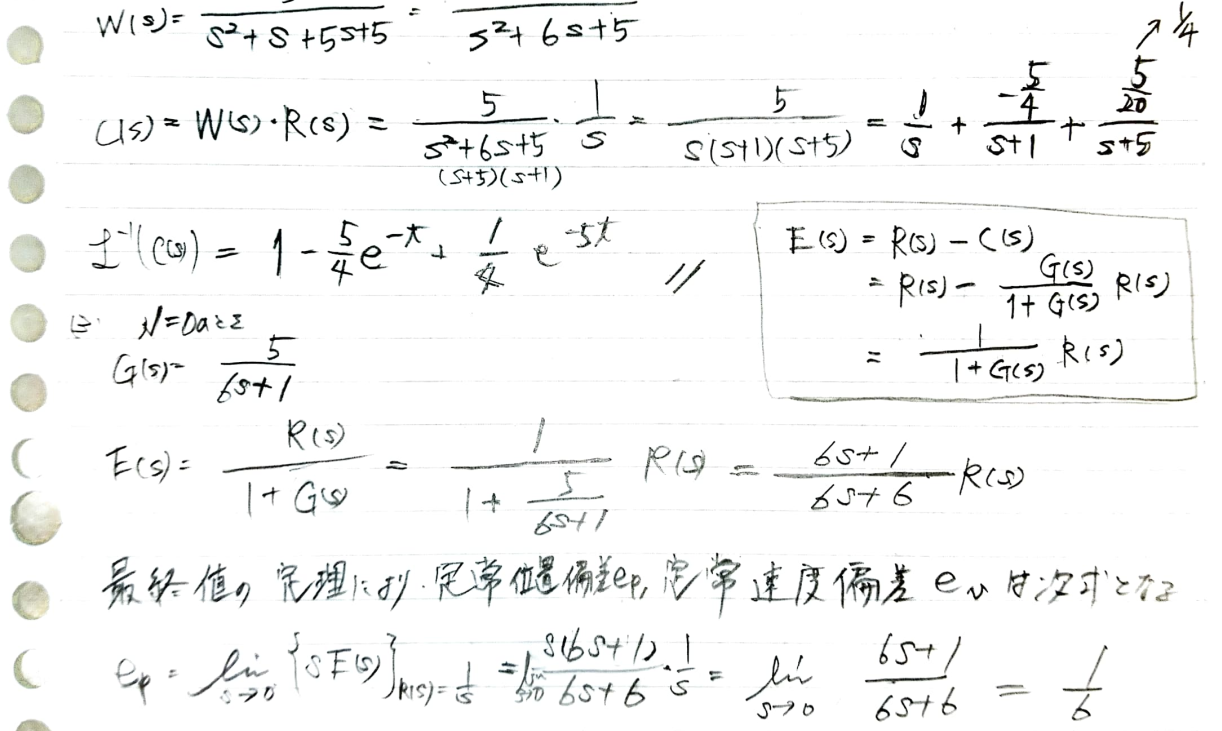 W(s)= / s²+s+5s+5 = / s²+6s+5
C(s) = W(s)・R(s) = 5/(s²+6s+5)・1/s = 5/(s(s+1)(s+5)) = 1/s + (-5/4)/(s+1) + (5/20)/(s+5) ↗ 1/4
(s+5)(s+1)
ℒ⁻¹(C(s)) = 1 - 5/4 e^(-t) + 1/4 e^(-5t) //
E(s) = R(s) - C(s)
= R(s) - G(s)/(1+G(s)) R(s)
= 1/(1+G(s)) R(s)
N=0のとき
G(s)= 5/(6s+1)
E(s)= R(s)/(1+G(s)) = 1/(1+5/(6s+1)) R(s) = (6s+1)/(6s+6) R(s)
最終値の定理により、定常位置偏差ep, 定常速度偏差 ev は次式となる
ep = lim s→0 {sE(s)} R(s)=1/s = lim s→0 s(6s+1)/(6s+6)・1/s = lim s→0 (6s+1)/(6s+6) = 1/6